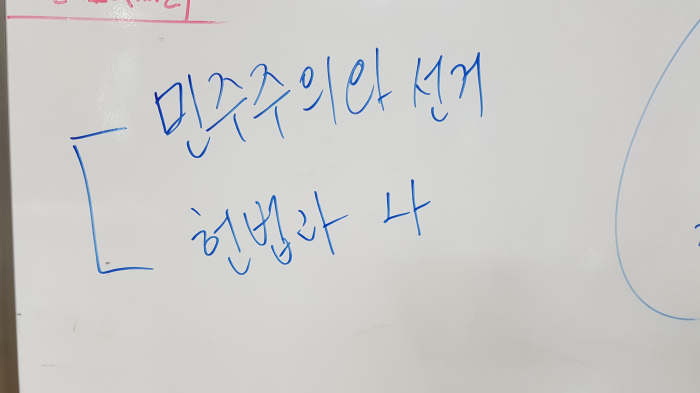 민주주의와 선거
헌법과 나